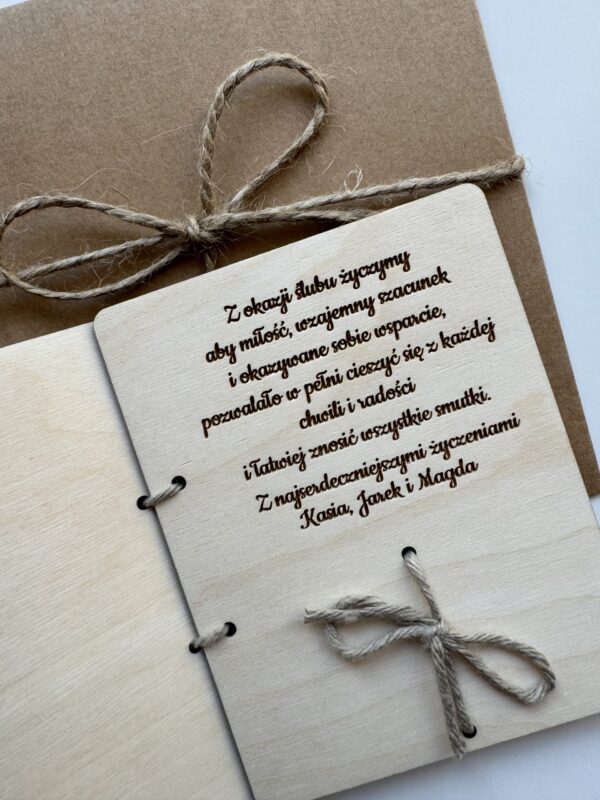 Z okazji ślubu życzymy
aby miłość, wzajemny szacunek
i okazywane sobie wsparcie,
pozwalało w pełni cieszyć się z każdej
chwili i radości
i łatwiej znosić wszystkie smutki.
Z najserdeczniejszymi życzeniami
Kasia, Jarek i Magda